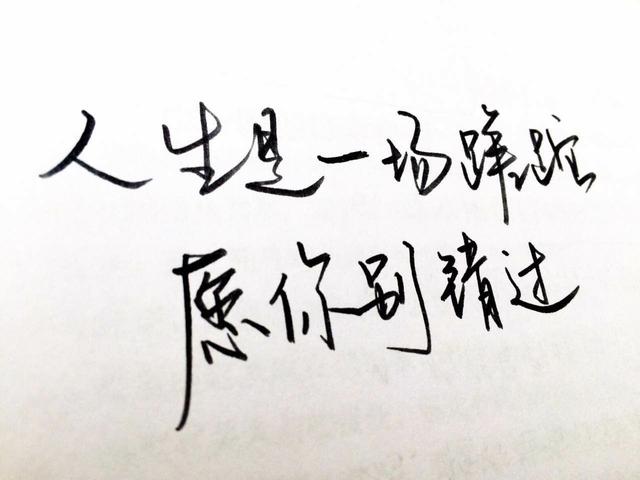 人生是一场蹉跎
愿你别错过